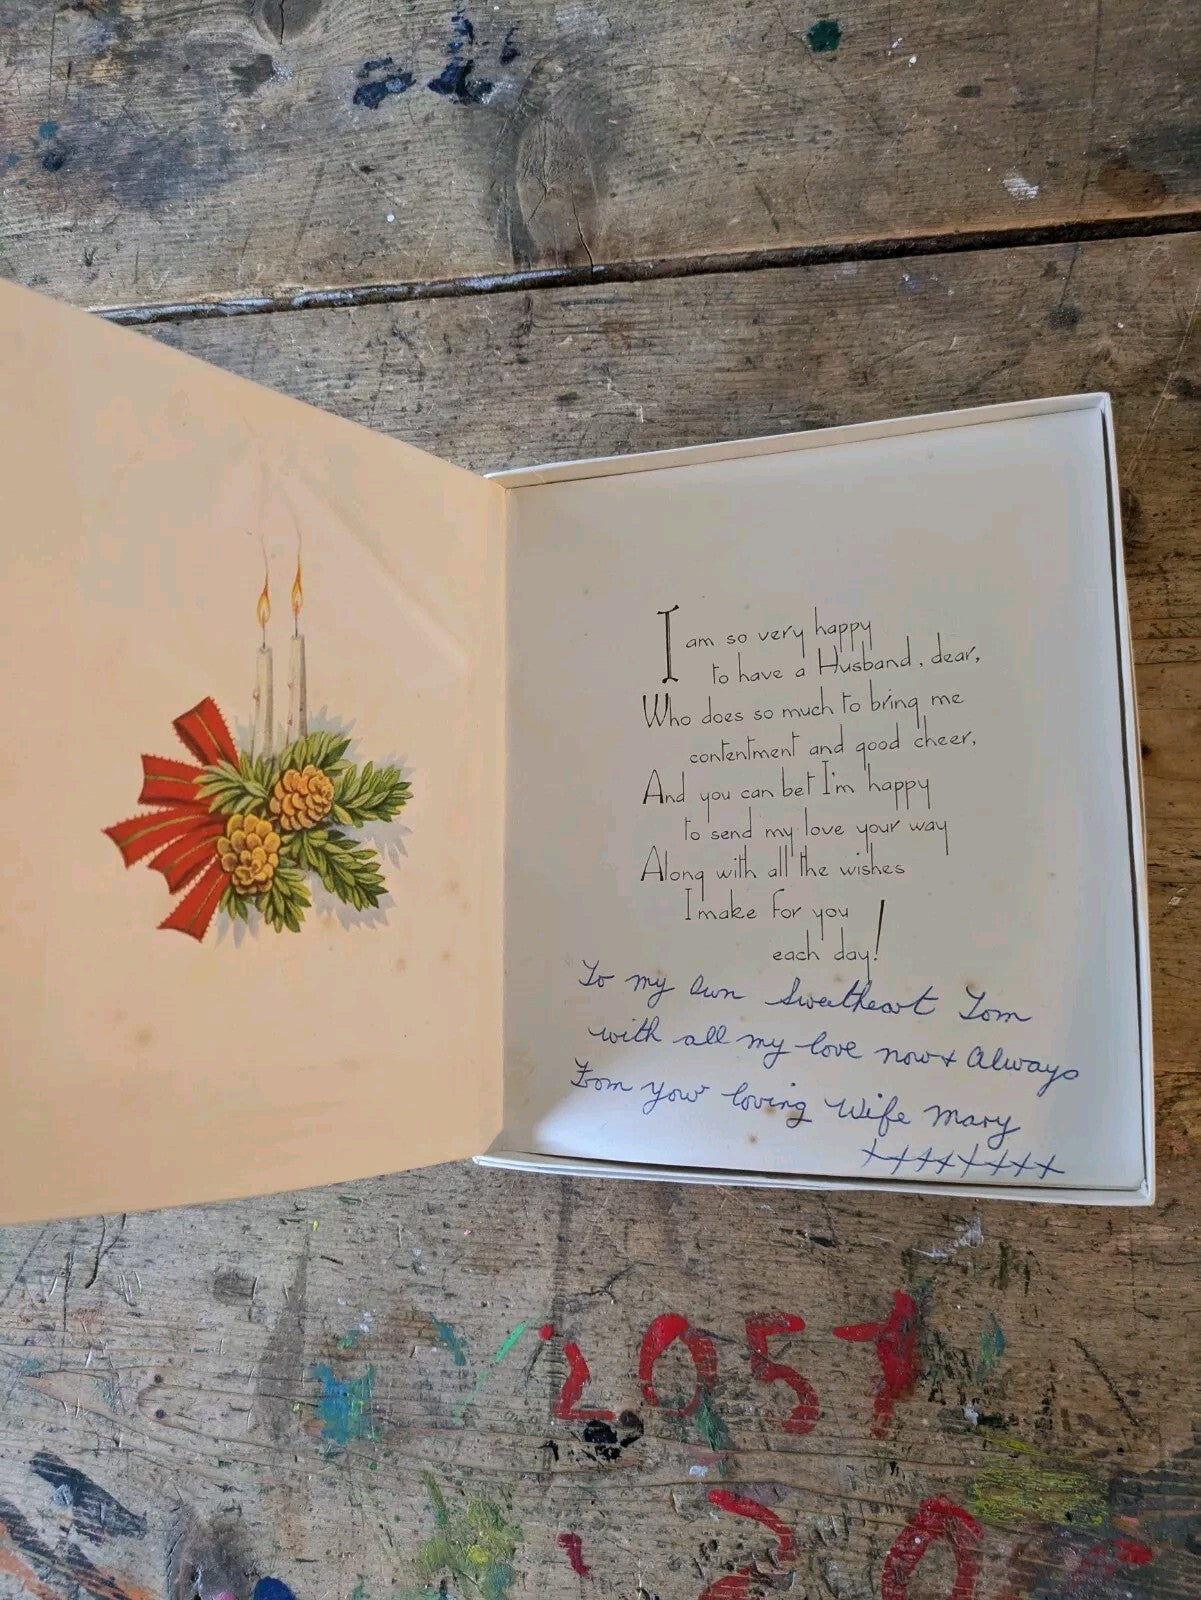 I am so very happy
to have a Husband, dear,
Who does so much to bring me
contentment and good cheer,
And you can bet I'm happy
to send my love your way
Along with all the wishes
I make for you
each day!
To my own Sweetheart Tom
with all my love now + Always
From your loving Wife Mary
xxxxxxxx
205